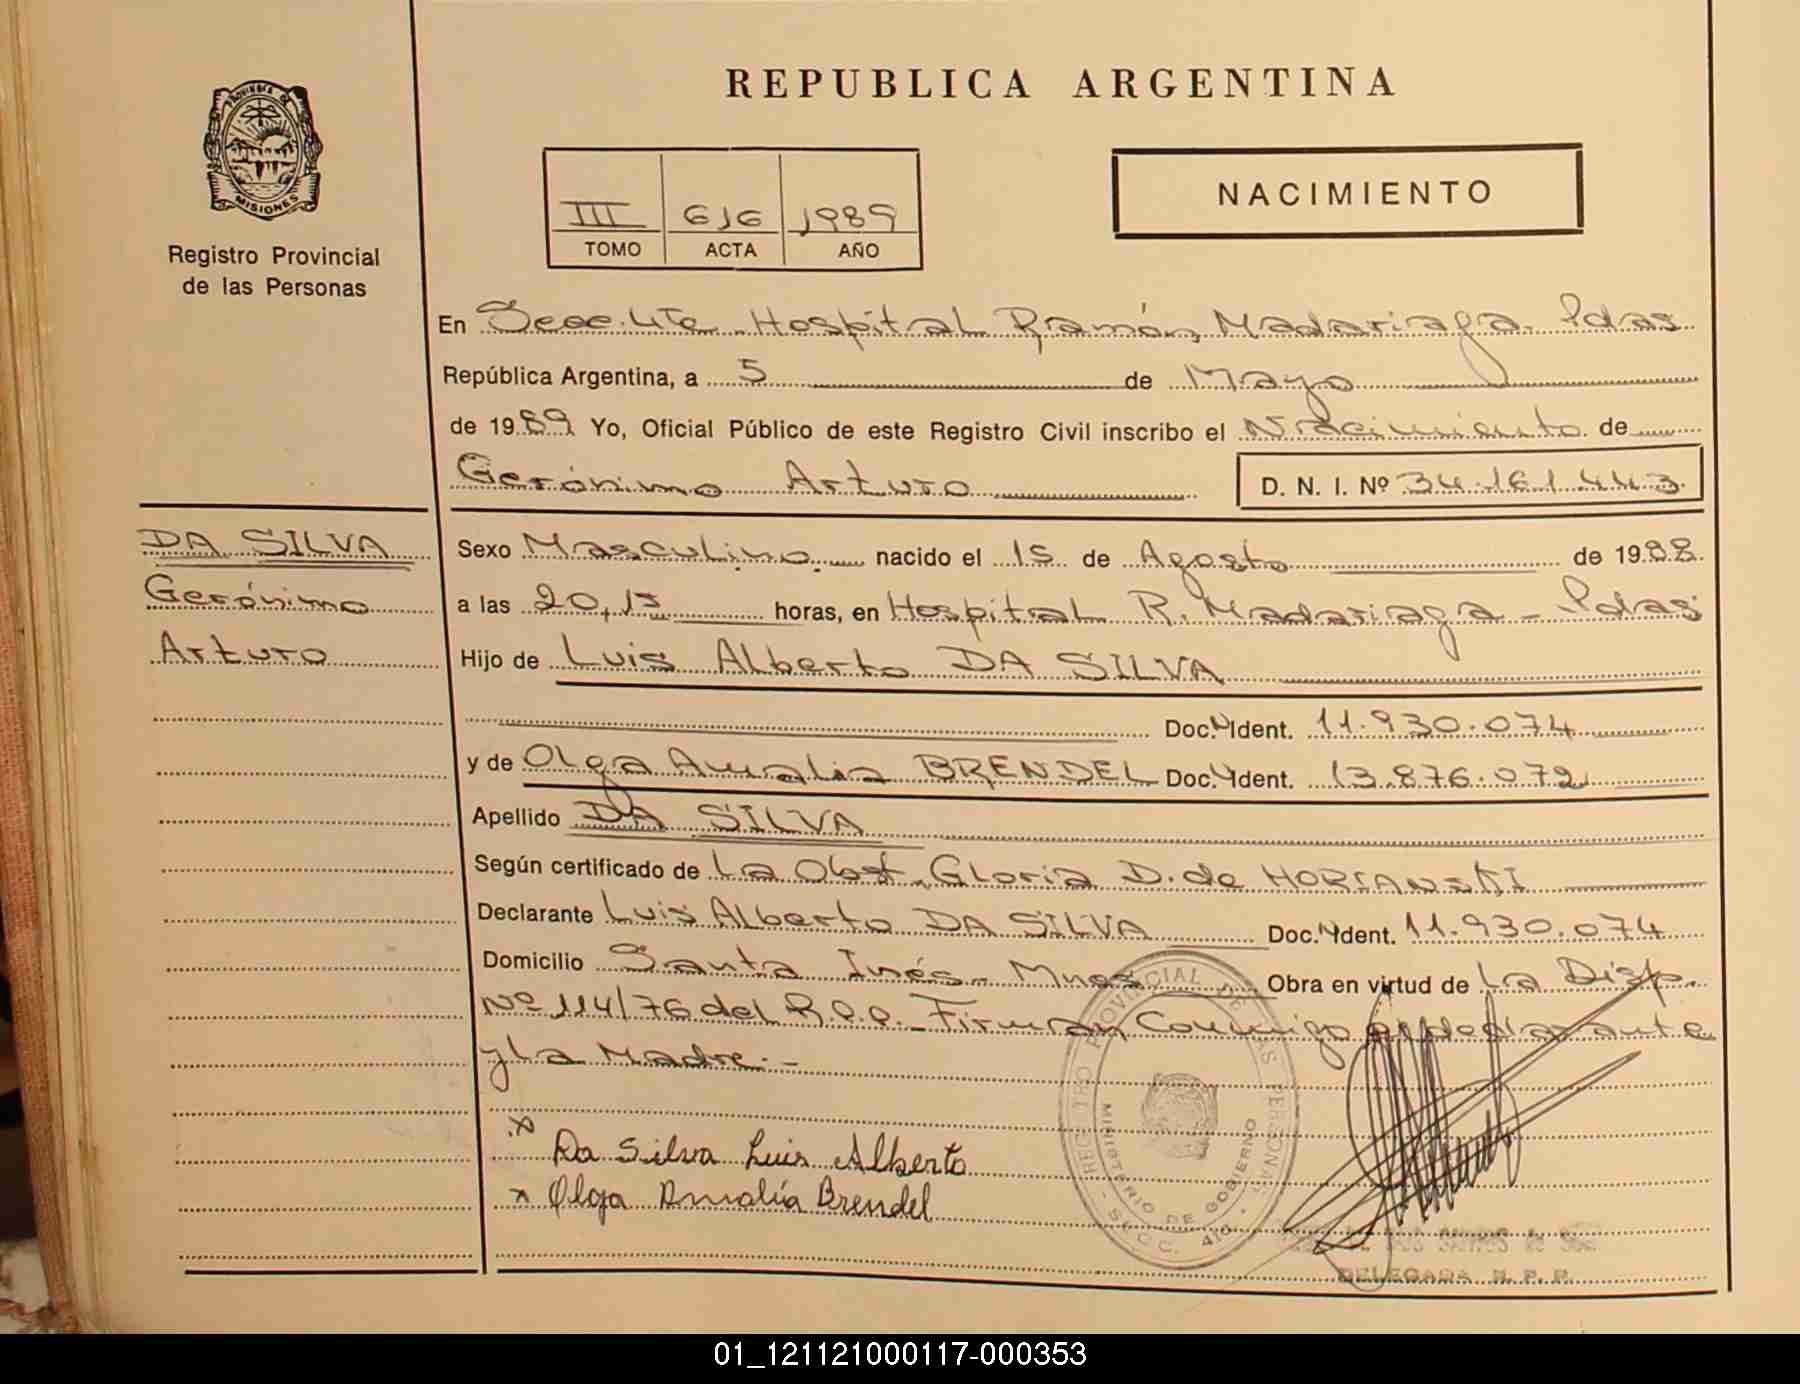 REPUBLICA ARGENTINA
PROVINCIA DE
MISIONES
Registro Provincial
de las Personas
III 616 1989
TOMO ACTA AÑO
NACIMIENTO
En Secc. 4ta. Hospital Ramón Madariaga. Pdas
República Argentina, a 5 de Mayo
de 1989 Yo, Oficial Público de este Registro Civil inscribo el Nacimiento de
Gerónimo Arturo D. N. I. Nº 34.161.443
DA SILVA
Gerónimo
Arturo
Sexo Masculino nacido el 15 de Agosto de 1988.
a las 20,15 horas, en Hospital R. Madariaga - Pdas
Hijo de Luis Alberto DA SILVA
Doc. N Ident. 11.930.074
y de Olga Amalia BRENDEL Doc. Ident. 13.876.072
Apellido DA SILVA
Según certificado de La Obst. Gloria D. de
Declarante Luis Alberto DA SILVA Doc. N Ident. 11.930.074
Domicilio Santa Inés - Mnes Obra en virtud de La Disp.
Nº 114/76 del R.P.P. - Firman Conmigo el declarante
y la Madre. -
x Da Silva Luis Alberto
x Olga Amalia Brendel
REGISTRO PROVINCIAL DE LAS PERSONAS
MINISTERIO DE GOBIERNO
SECC. 4ta
DELEGADA R. P. P.
01_121121000117-000353